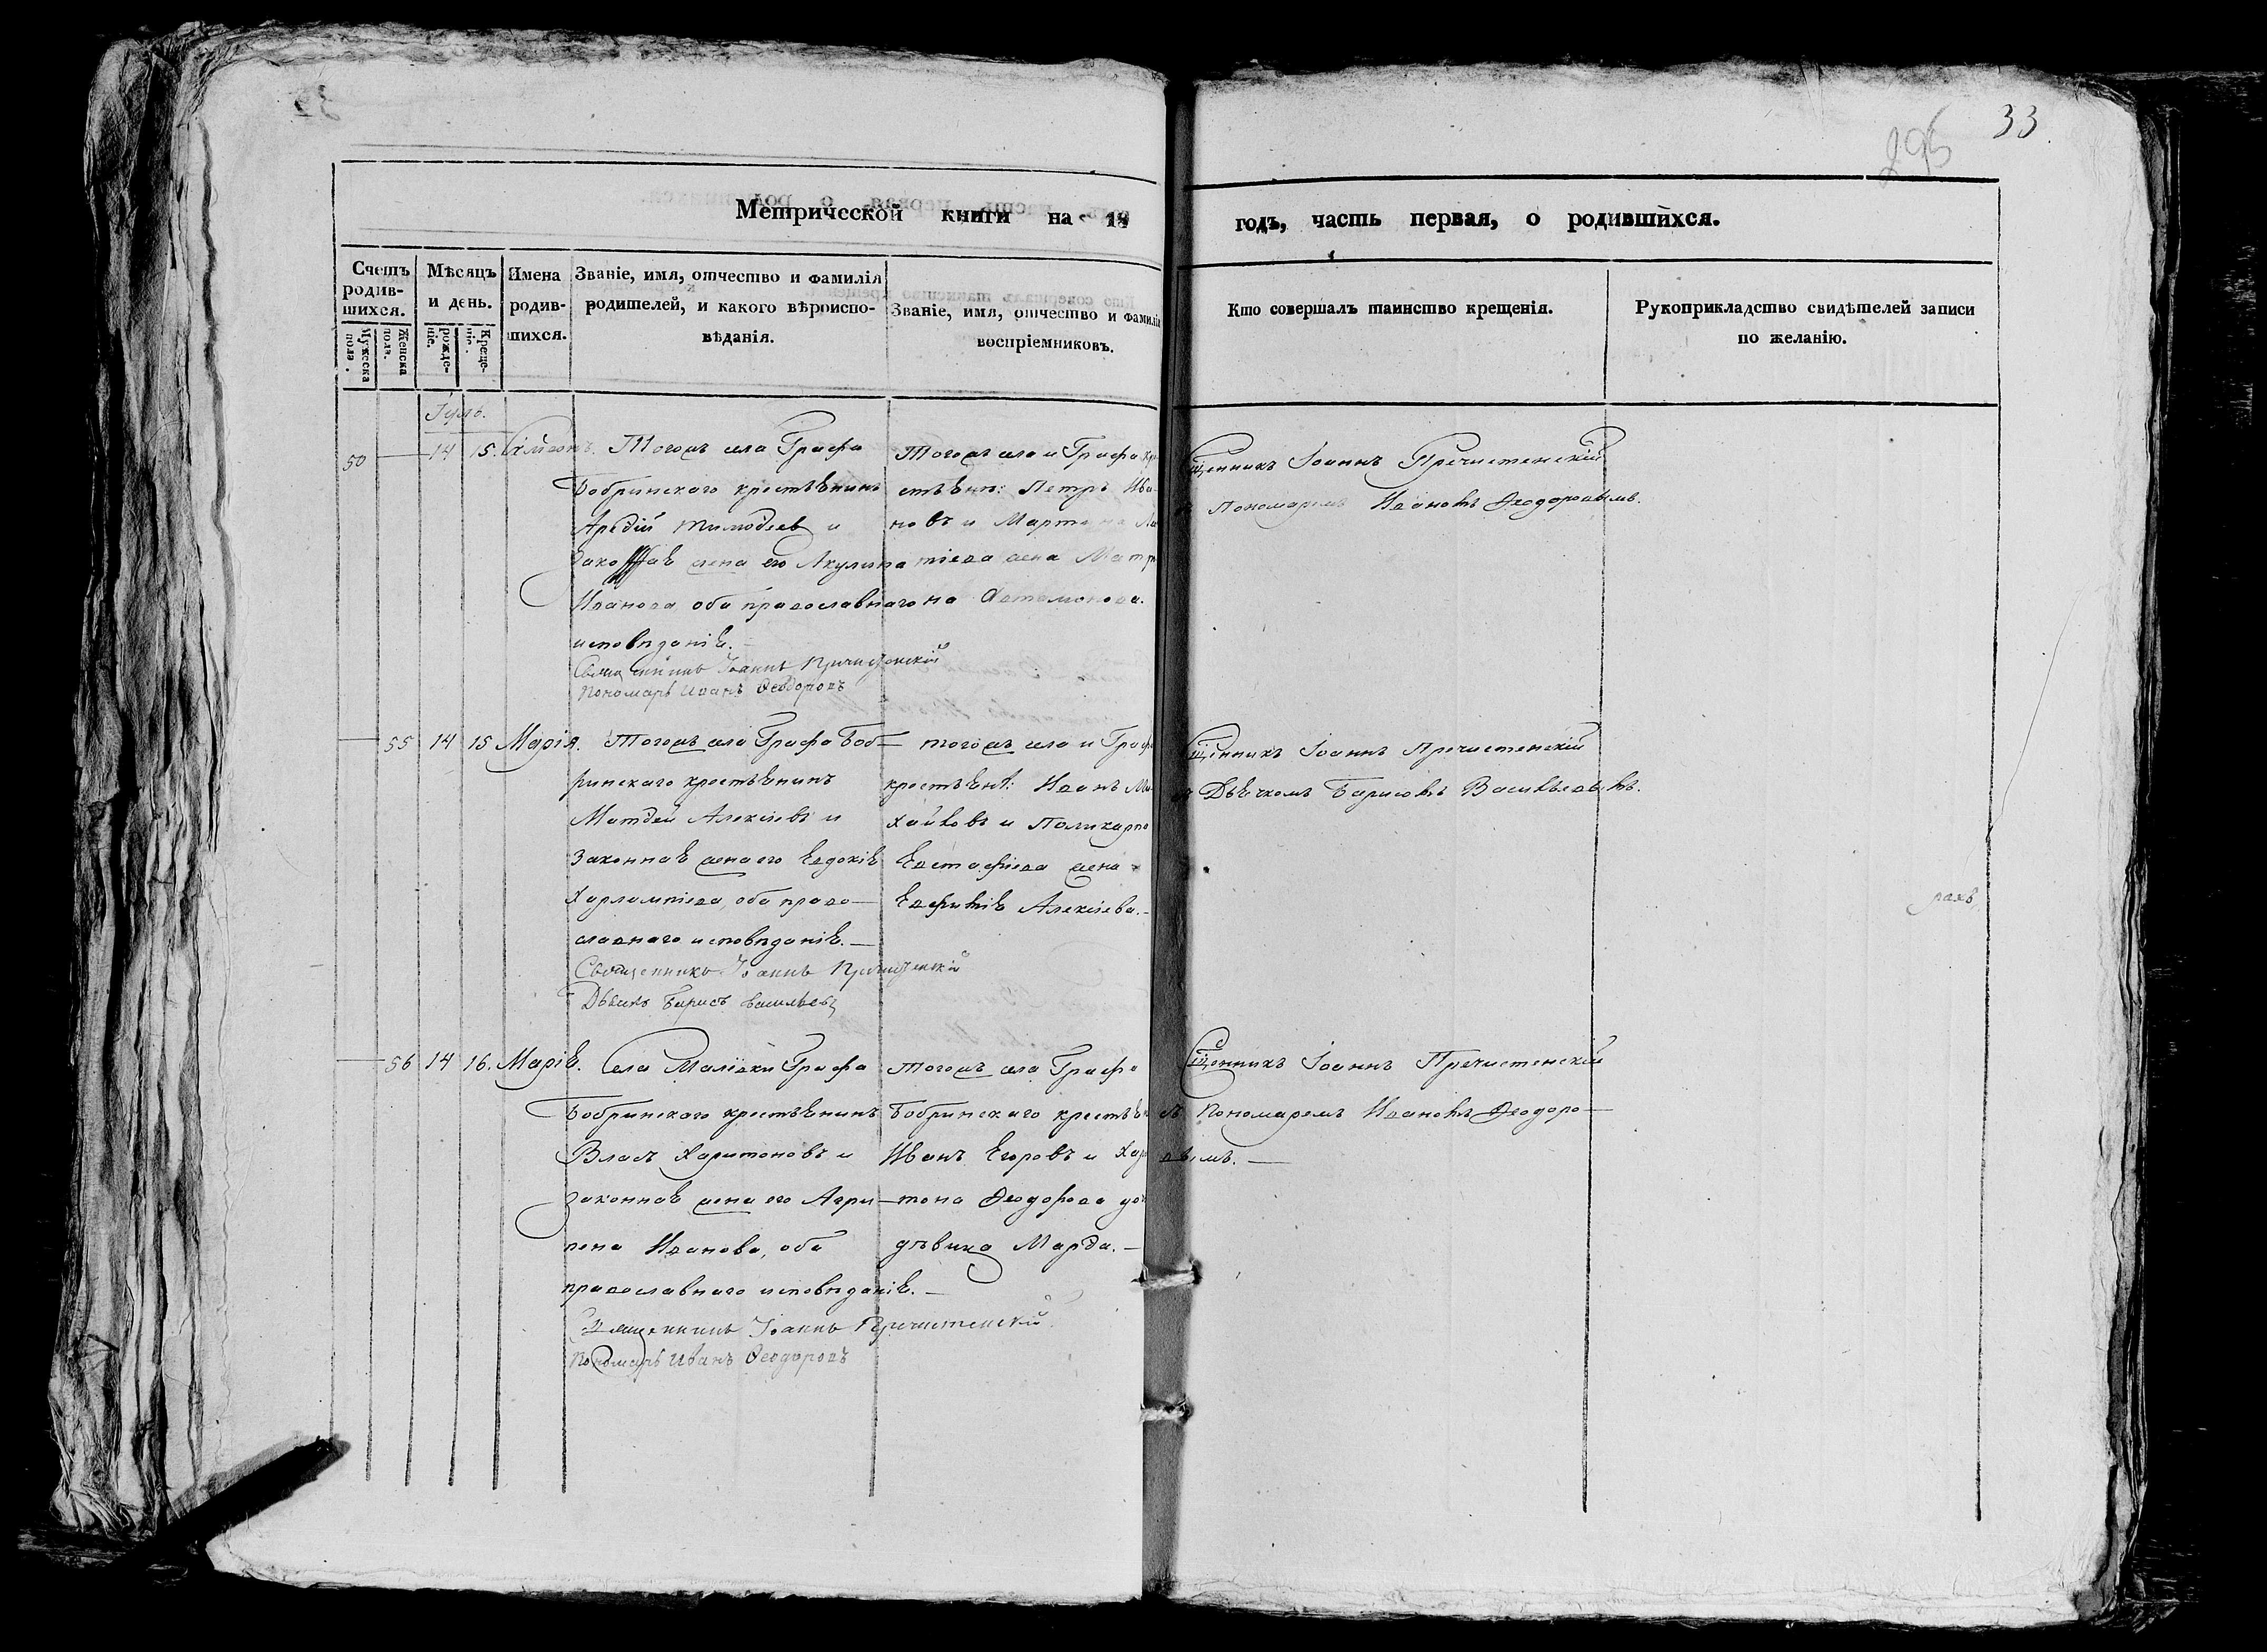 33
295
Метрической книги на 18 годъ, часть первая, о родившихся.
Счетъ родив-
шихся.
Мужеска пола.
Женска пола.
Мѣсяцъ
и день.
Рожде-
ніе.
Креще-
ніе.
Имена
родив-
шихся.
Званіе, имя, отчество и фамилія
родителей, и какого вѣроиспо-
вѣданія.
Званіе, имя, отчество и фамилія
воспріемниковъ.
Кто совершалъ таинство крещенія.
Рукоприкладство свидѣтелей записи
по желанію.
50 14 15.
Тогожъ села Графа
Бобринскаго крестьянинъ
и
жена его Акулина
Иванова, оба православнаго
исповѣданія.
Священникъ Іоаннъ Пречистенскій
Пономарь Иванъ Ѳеодоровъ
Тогожъ села и Графа
Петръ Ива-
новъ и
жена
Артамонова.
Священникъ Іоаннъ Пречистенскій
Пономаремъ Иваномъ Ѳеодоровымъ.
55 14 15 Марія.
Тогожъ села Графа Боб-
ринскаго крестьянинъ
Матѳей Алексѣевъ и
Законная жена его Евдокія
Харлампіева, оба право-
славнаго исповѣданія.—
Священникъ Іоаннъ Пречистенскій
Дьячикъ Борисъ Васильевъ
тогожъ села и Графа
Иванъ Ми-
хайловъ и
Евстафіева жена
Евфимія Алексѣева.—
Священникъ Іоаннъ Пречистенскій
Дьячкомъ Борисомъ Васильевымъ.
56 14 16. Марія.
Села Малёвки Графа
Бобринскаго крестьянинъ
Власъ Харитоновъ и
законная жена его Агри-
пена Иванова, оба
православнаго исповѣданія.—
Священникъ Іоаннъ Пречистенскій
Пономарь Иванъ Ѳеодоровъ
тогожъ села Графа
Бобринскаго
Иванъ Егоровъ и Хари-
тона Ѳеодорова
дѣвица Марѳа.—
Священникъ Іоаннъ Пречистенскій
съ Пономаремъ Иваномъ Ѳеодоро-
вымъ.—